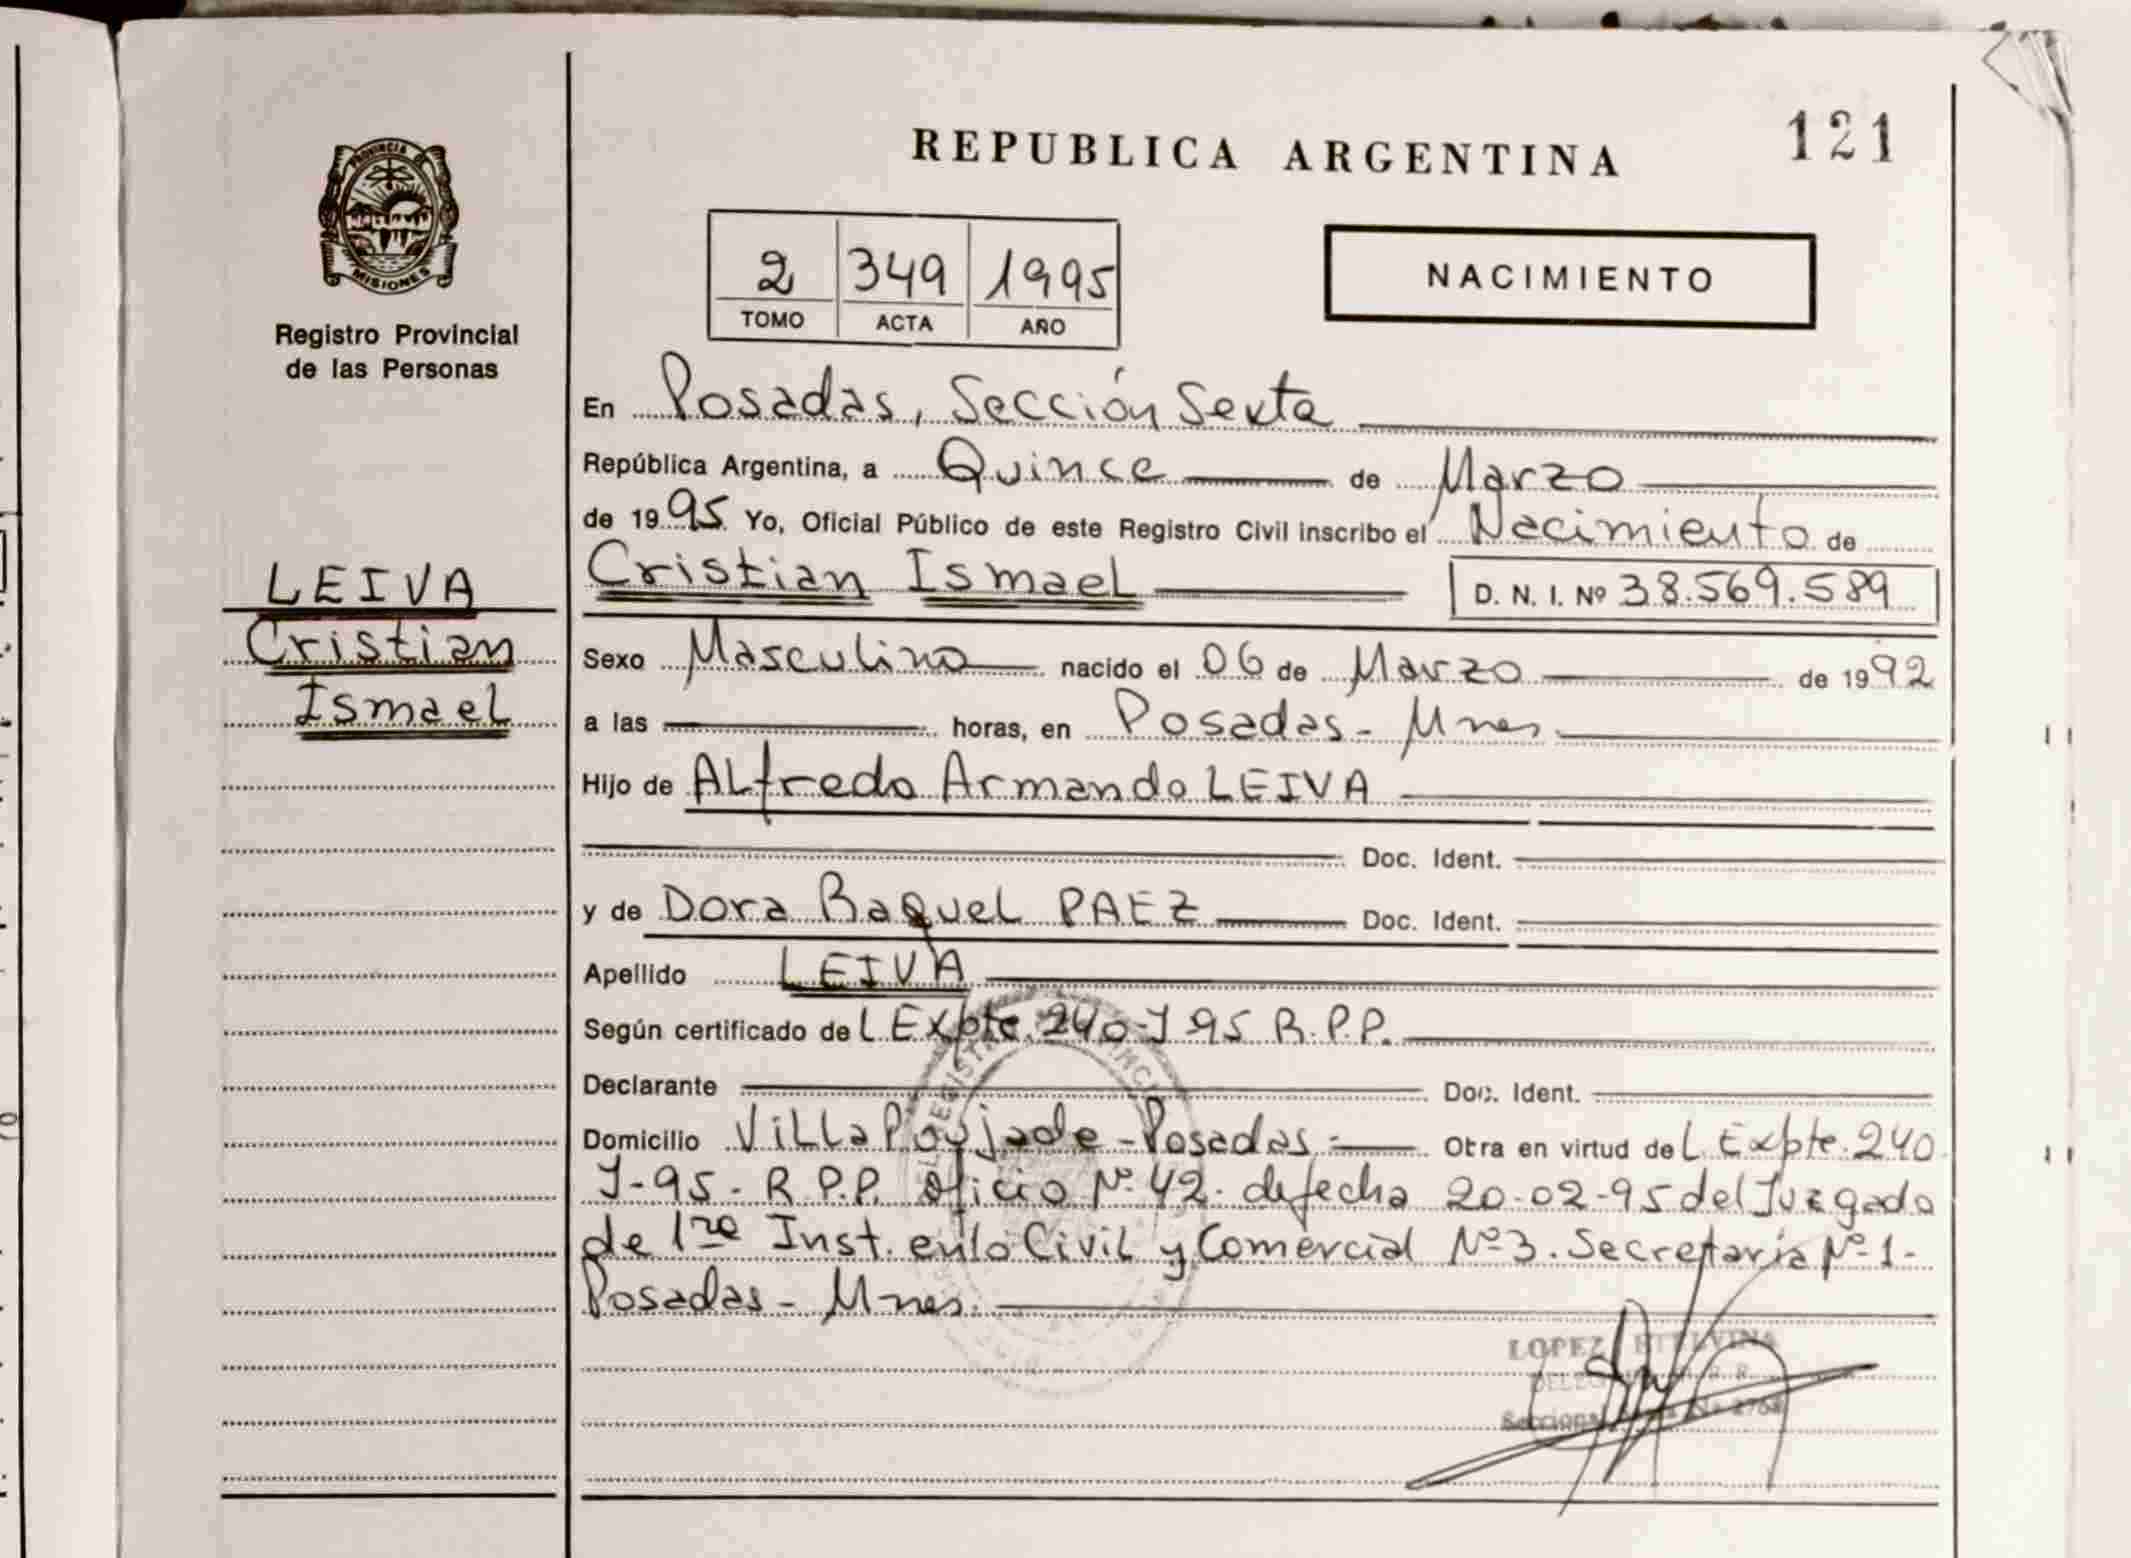 REPUBLICA ARGENTINA
121
PROVINCIA DE
MISIONES
Registro Provincial
de las Personas
2 349 1995
TOMO ACTA AÑO
NACIMIENTO
En Posadas, Sección Sexta
República Argentina, a Quince de Marzo
de 1995 Yo, Oficial Público de este Registro Civil inscribo el Nacimiento de
Cristian Ismael
D. N. I. Nº 38.569.589
LEIVA
Cristian
Ismael
Sexo Masculino nacido el 06 de Marzo de 1992
a las horas, en Posadas - Mnes
Hijo de ALfredo Armando LEIVA
Doc. Ident.
y de Dora Raquel PAEZ Doc. Ident.
Apellido LEIVA
Según certificado de L Expte. 240-J 95 R.P.P.
Declarante Doc. Ident.
Domicilio ViLLa Poujade - Posadas - Otra en virtud de L Expte. 240
J-95 - R.P.P. Oficio Nº 42. de fecha 20-02-95 del Juzgado
de 1ra Inst. en lo Civil y Comercial Nº 3. Secretaría Nº 1 -
Posadas - Mnes.
LOPEZ ETELVINA